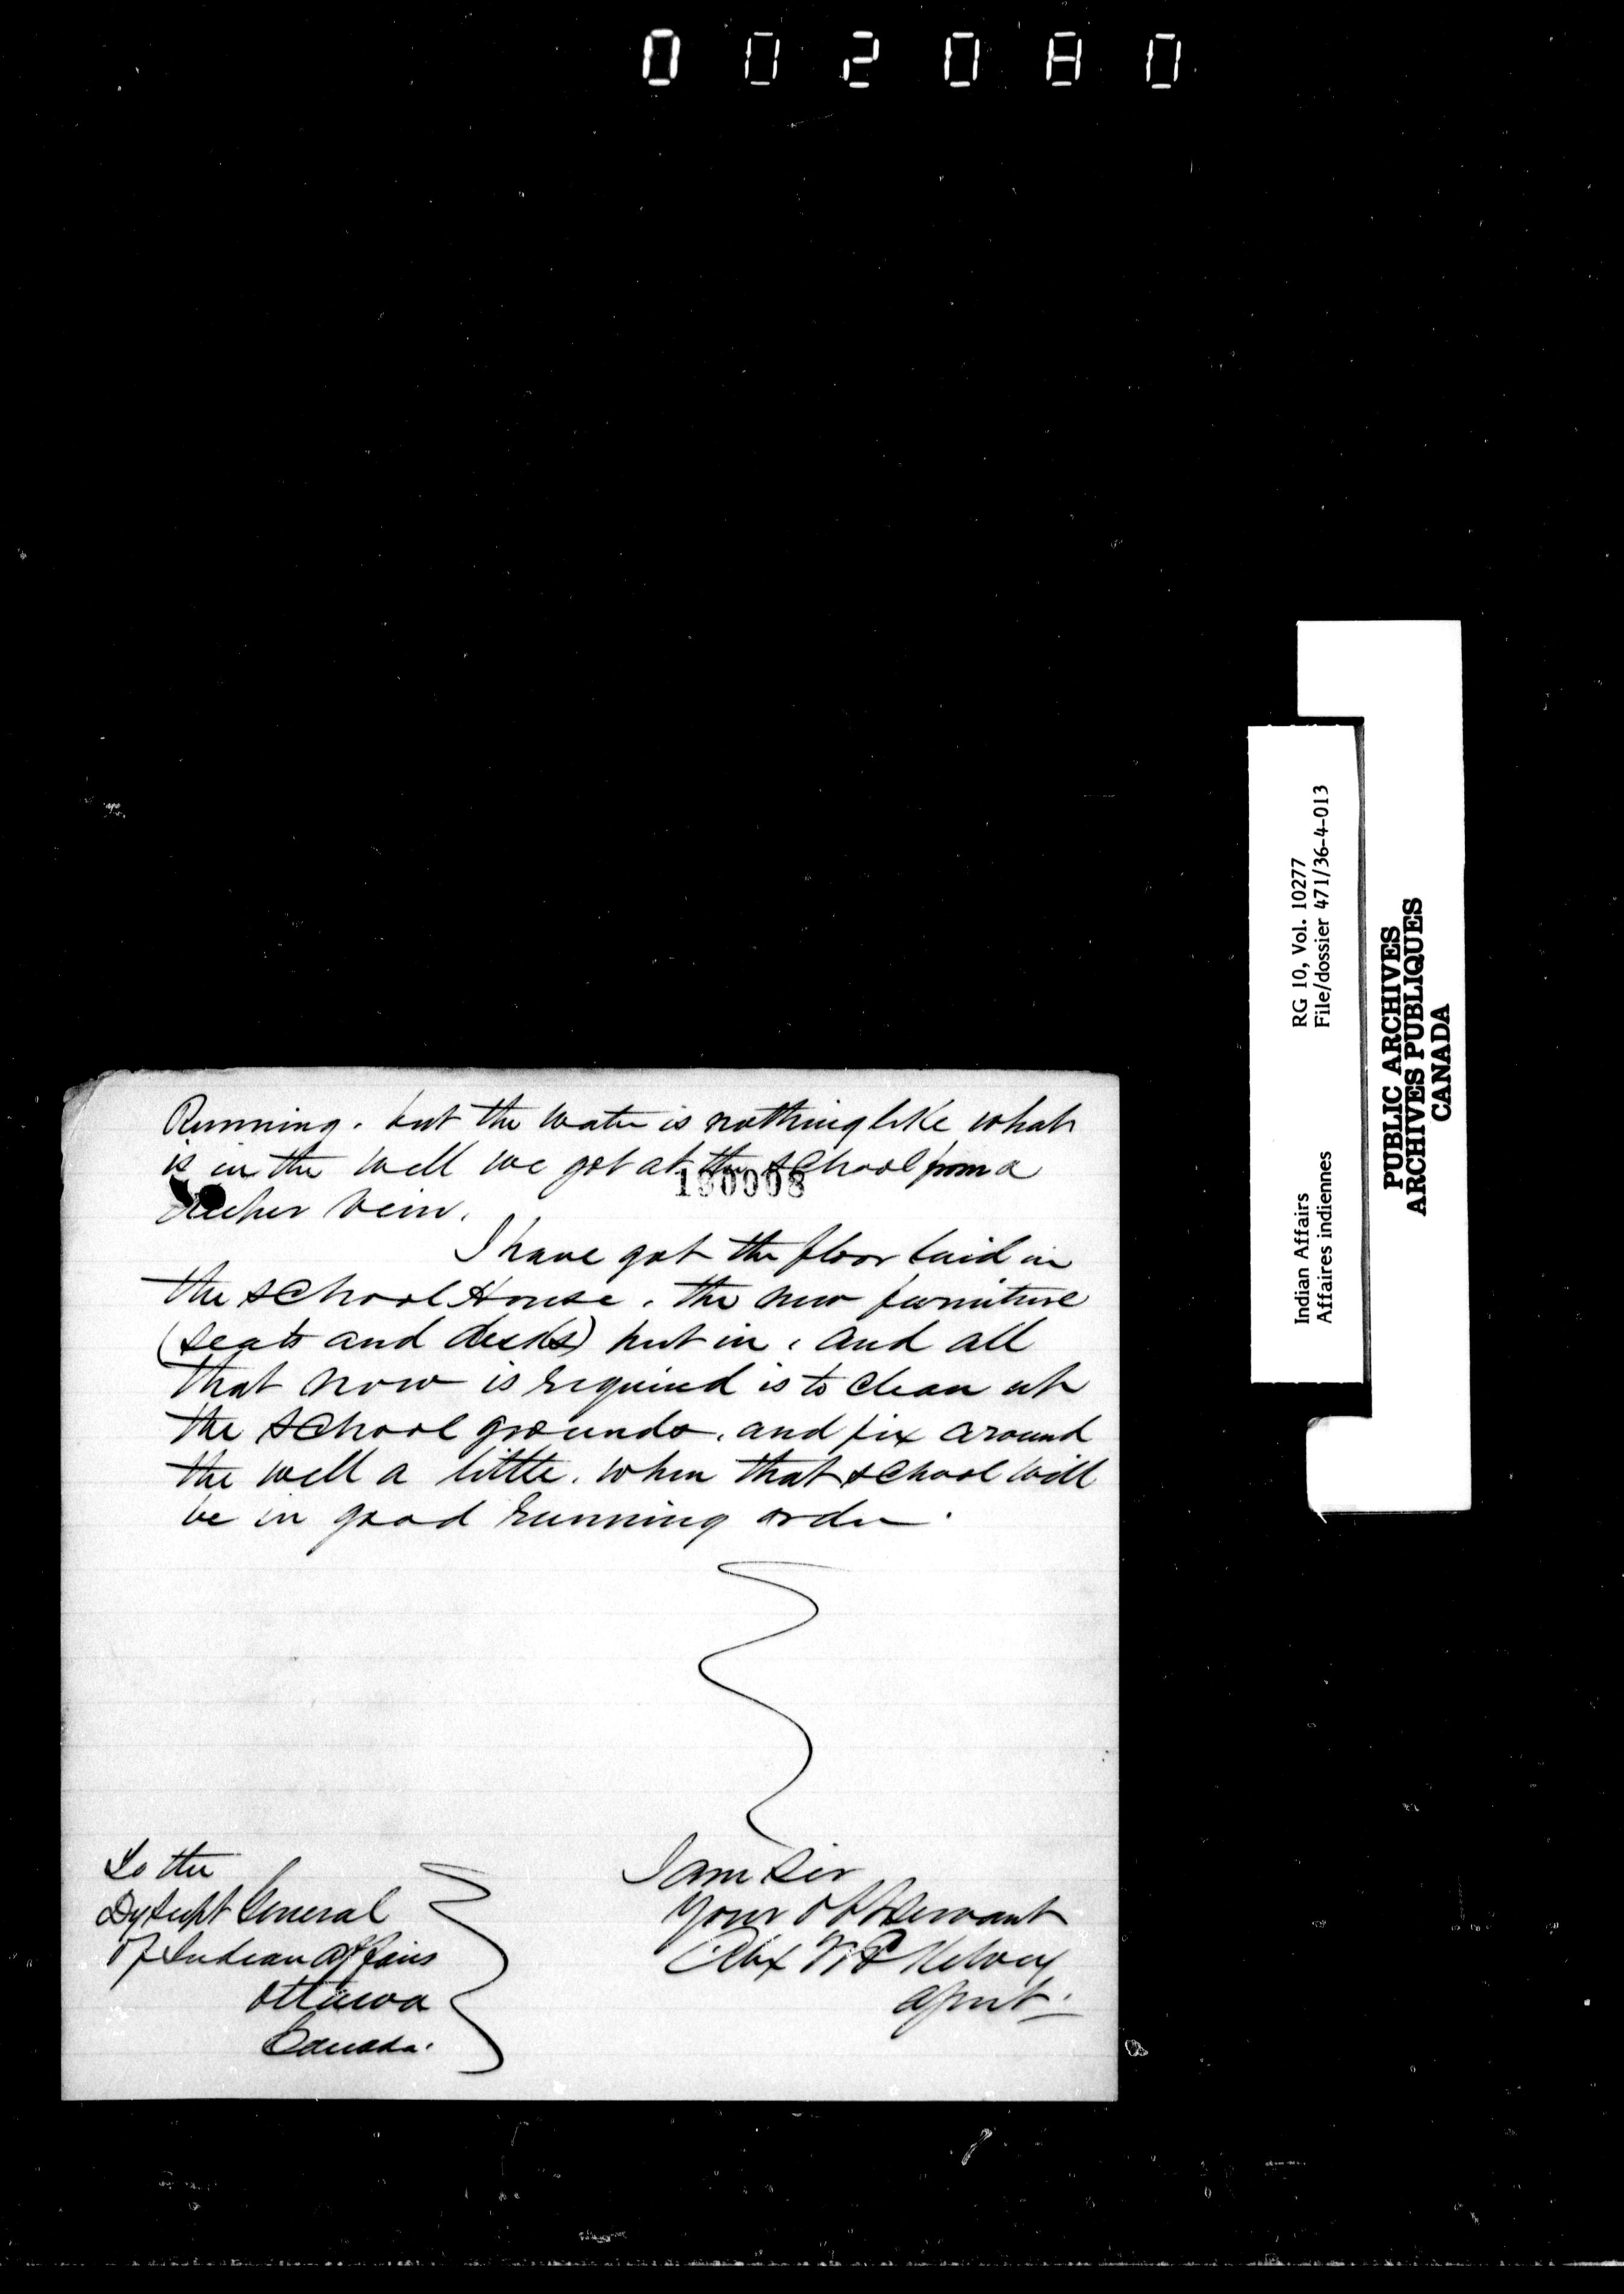 002080
Running. but the water is nothing like what
is in the well we got at the school from a
190008
vein.
I have got the floor laid in
the school House. the new furniture
(seats and desks) put in. and all
that now is required is to clean up
the school grounds. and fix around
the well a little. when that school will
be in good running order.
I am Sir
Your Obt Servant
Alex McKelvey
Agent.
To the
Dy Supt General
Of Indian Affairs
Ottawa
Canada.
Indian Affairs RG 10, Vol. 10277
Affaires indiennes File/dossier 471/36-4-013
PUBLIC ARCHIVES
ARCHIVES PUBLIQUES
CANADA